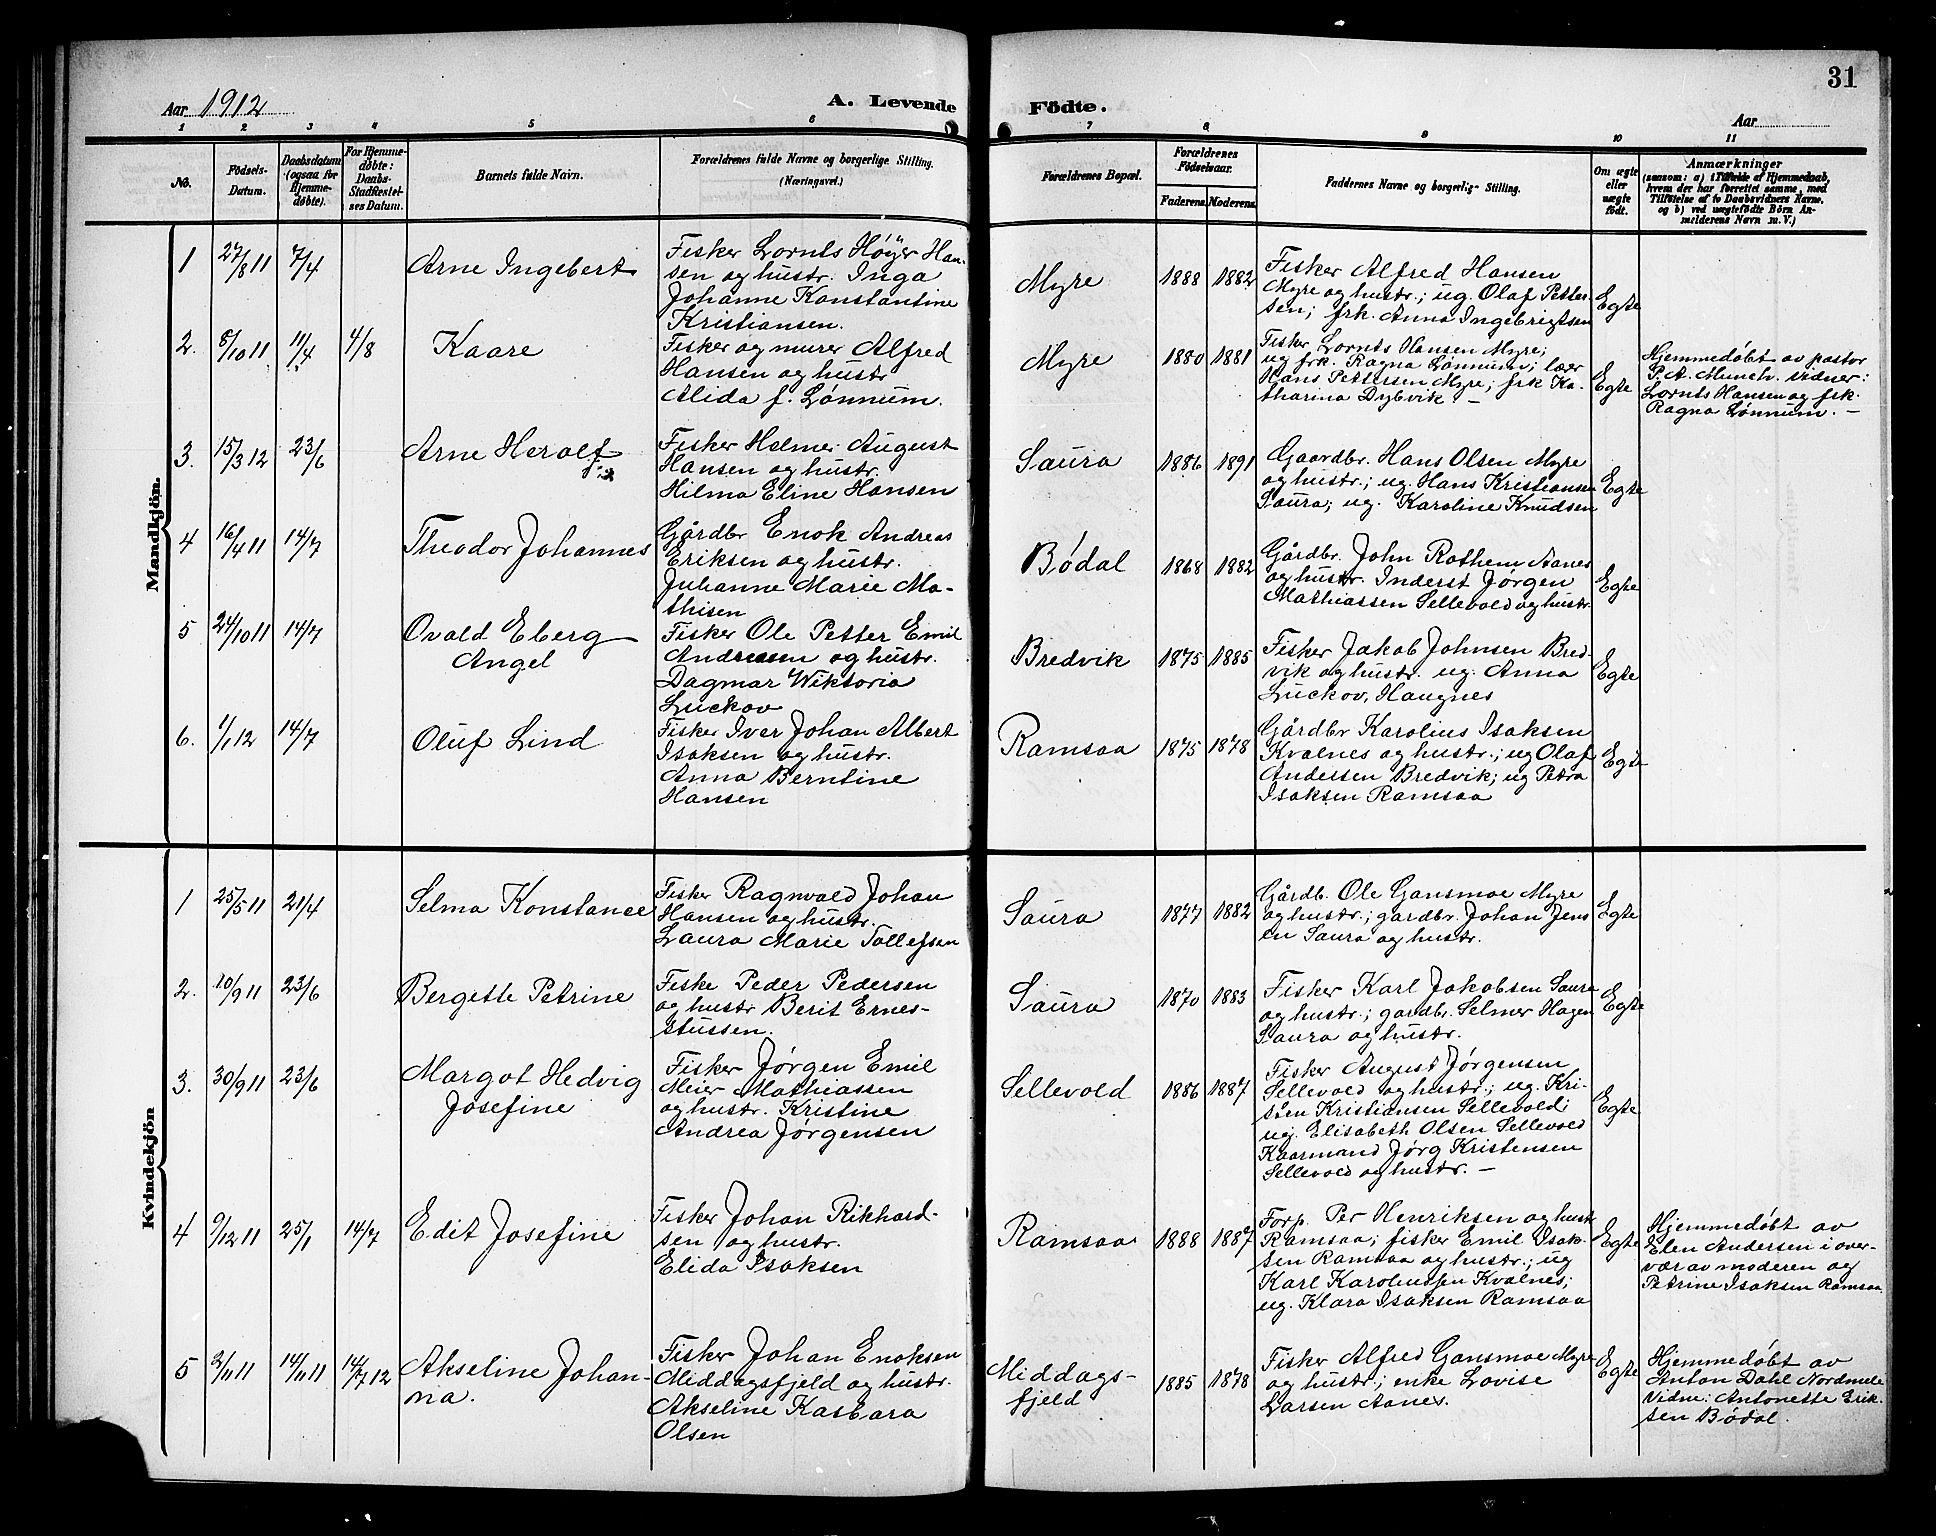 31
Aar 1912
A. Levende Födte.
Aar
1 2 3 4 5 6 7 8 9 10 11
No.
Födsels-
Datum.
Daabsdatum
(ogsaa for
Hjemme-
døbte).
For Hjemme-
døbte:
Daabs-
Stadfestel-
ses Datum.
Barnets fulde Navn.
Forældrenes fulde Navne og borgerlige Stilling.
(Næringsvei.)
Forældrenes Bopæl.
Forældrenes
Födselsaar.
Faderens. Moderens.
Faddernes Navne og borgerlige Stilling.
Om ægte
eller
uægte
født.
Anmærkninger
(saasom: a) i Tilfælde af Hjemmedaab,
hvem der har forrettet samme, med
Tilføielse af to Daabsvidners Navne,
og b) ved uægtefödte Börn An-
melderens Navn m. V.)
Mandkjön.
1
27/8 11
7/4
Arne Ingebert
Fisker Lornts Høyer Han-
sen og hustr. Inga
Johanne Konstantine
Kristiansen.
Myre
1888 1882
Fisker Alfred Hansen
Myre og hustr.; ug. Olaf Petter-
sen; frk. Anna Ingebrigtsen
Egte
2.
8/10 11
11/4
4/8
Kaare
Fisker og murer Alfred
Hansen og hustr
Alida f. Lønnum.
Myre
1880 1881
Fisker Lornts Hansen Myre;
ug frk. Ragna Lønnum; lærer
Hans Pettersen Myre; frk Ka-
tharina Dybvik –
Egte
Hjemmedøbt av pastor
P. A. Munch. Vidner:
Lornts Hansen og frk.
Ragna Lønnum. –
3.
15/3 12
23/6
Arne Herolf
Fisker Helmer August
Hansen og hustr.
Hilma Eline Hansen
Saura
1886 1891
Gaardbr. Hans Olsen Myre
og hustr.; ug. Hans Kristiansen
Saura; ug. Karoline Knudsen
Egte
4
16/4 11
14/7
Theodor Johannes
Gårdbr Enok Andreas
Eriksen og hustr.
Juhanne Marie Ma-
thisen
Bødal
1868 1882
Gårdbr. John Rothem Aanes
og hustr. Inderst Jørgen
Mathiassen Sellevold og hustr.
Egte
5
24/10 11
14/7
Ovald Eberg
Angel
Fisker Ole Petter Emil
Andreasen og hustr.
Dagmar Wiktoria
Luckov
Bredvik
1875 1885
Fisker Jakob Johnsen Bred-
vik og hustr. ug. Anna
Luckov, Haugnes
Egte
6.
1/1 12
14/7
Oluf Lind
Fisker Iver Johan Albert
Isaksen og hustr.
Anna Berntine
Hansen
Ramsaa
1875 1878
Gårdbr Karolius Isaksen
Kvalnes og hustr.; ug Olaf
Andersen Bredvik; ug Petra
Isaksen Ramsaa
Egte
Kvindekjön
1
25/5 11
21/4
Selma Konstance
Fisker Ragnvald Johan
Hansen og hustr.
Laura Marie Tollefsen
Saura
1877 1882
Gårdb. Ole Gansmoe Myre
og hustr.; gardbr. Johan Jens
en Saura og hustr.
Egte
2.
10/9 11
23/6
Bergette Petrine
Fiske Peder Pedersen
og hustr Berit Ernes-
stussen.
Saura
1870 1883
Fisker Karl Jakobsen Saura
og hustr.; gardbr. Selmer Hagen
Saura og hustr.
Egte
3.
30/9 11
23/6
Margot Hedvig
Josefine
Fisker Jørgen Emil
Meier Mathiassen
og hustr. Kristine
Andrea Jørgensen
Sellevold
1886 1887
Fisker August Jørgensen
Sellevold og hustr.; ug. Kri-
sten Kristiansen Sellevold;
ug. Elisabeth Olsen Sellevold
Kaarmand Jørg Kristensen
Sellevold og hustr. –
Egte
4
9/12 11
25/1
14/7
Edit Josefine
Fisker Johan Rikhard-
sen og hustr.
Elida Isaksen
Ramsaa
1888 1887
Forp. Per Henriksen og hustr
Ramsaa; fisker Emil Isak-
sen Ramsaa og hustr.; ug
Karl Karoliussen Kvalnes;
ug. Klara Isaksen Ramsaa
Egte
Hjemmedøbt av
Elen Andersen i over-
vær av moderen og
Petrine Isaksen Ramsaa.
5
2/11 11
14/11 11
14/7 12
Akseline Johan-
na.
Fisker Johan Enoksen
Middagsfjeld og hustr.
Akseline Kasbara
Olsen
Middags-
fjeld
1885 1878
Fisker Alfred Gansmoe Myre
og hustr.; enke Lovise
Larsen Aanes.
Egte
Hjemmedøbt av
Anton Dahl Nordmele
Vidne: Antonette Erik-
sen Bødal.